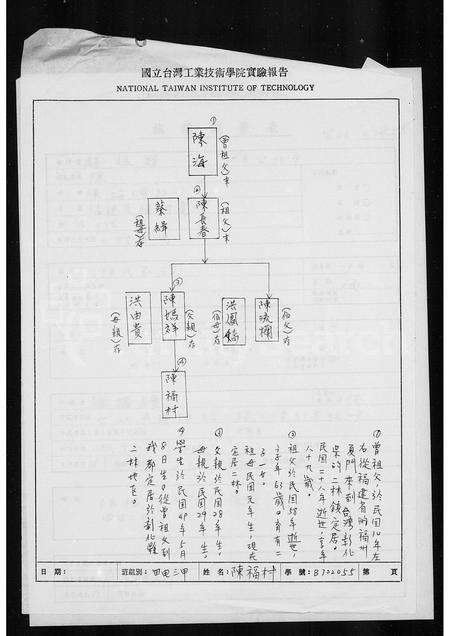 國立台灣工業技術學院實驗報告
NATIONAL TAIWAN INSTITUTE OF TECHNOLOGY
①
陳海
(曾祖父)
②
陳長春
(祖父)
蔡緝
(祖母)存
③
陳媽祥
(父親)存
洪由貴
(母親)存
洪鳳嬌
(伯母)存
陳流欄
(伯父)存
④
陳福村
①曾祖父於民國10年左
右從福建省的福州
廈門來到台灣彰化
縣的二林鎮定居。
民國二十八年逝世,享年
八十九歲。
②祖父於民國58年逝世,
享年63歲。育有二
子一女。
祖母民國元年生,現在
定居二林。
③父親於民國28年生,
母親於民國29年生。
④學生於民國49年5月
8日生。從曾祖父到
我都定居於彰化縣
二林地區。
日期:
班級別: 四電三甲
姓名: 陳福村
學號: B722055
第 頁